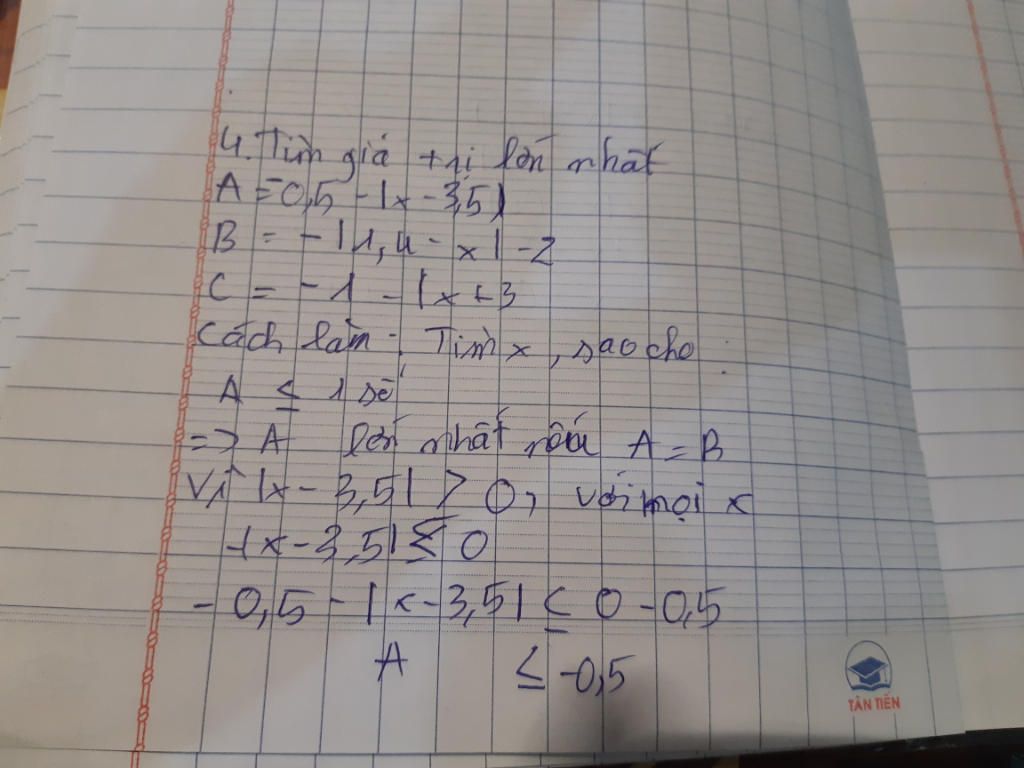 4. Tìm giá trị lớn nhất
A = -0,5 - |x - 3,5|
B = - |1,4 - x| - 2
C = - 1 - |x + 3
Cách làm: Tìm x, sao cho
A ≤ 1 số
=> A lớn nhất nếu A = B
Vì |x - 3,5| > 0, với mọi x
-|x - 3,5| ≤ 0
- 0,5 - |x - 3,5| ≤ 0 - 0,5
A ≤ -0,5
TÂN TIẾN